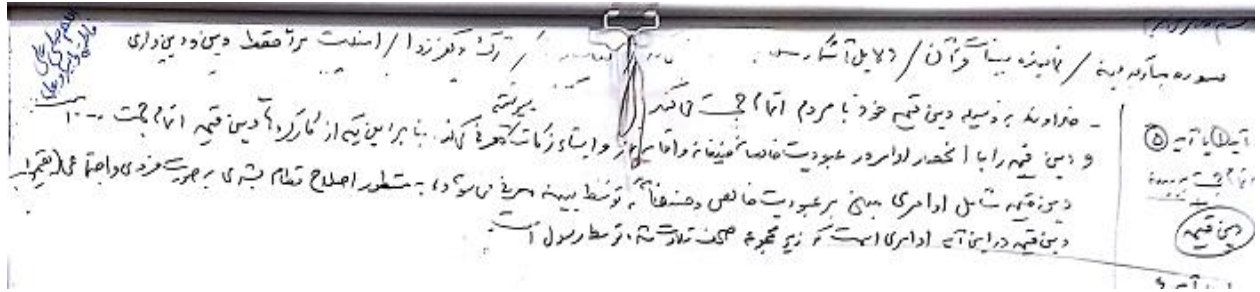 سوره مبارکه بینه / نماینده بینات قرآن / دلایل آشکار / ترک و کفر زدا / امنیت برآ حفظ دین و دین داری
آیه ① تا آیه ⑤
- خداوند به وسیله دین قیمه خود با مردم اتمام حجت می کند
و دین قیمه را با انحصار اوامر در عبودیت خالصانه حنیفانه و اقامه نماز و ایتاء زکات می کند. بنابراین یکی از کارکردهآ دین قیمه اتمام حجت است
دین قیمه شامل اوامری مبنی بر عبودیت خالص و حنیفاً که توسط بینه معرفی می شود، به منظور اصلاح نظام بشری به صورت فردی و اجتماعی
دین قیمه
دین قیمه در این آیه اوامری است که زیر مجموعه صحف تلاوت شده توسط رسول است